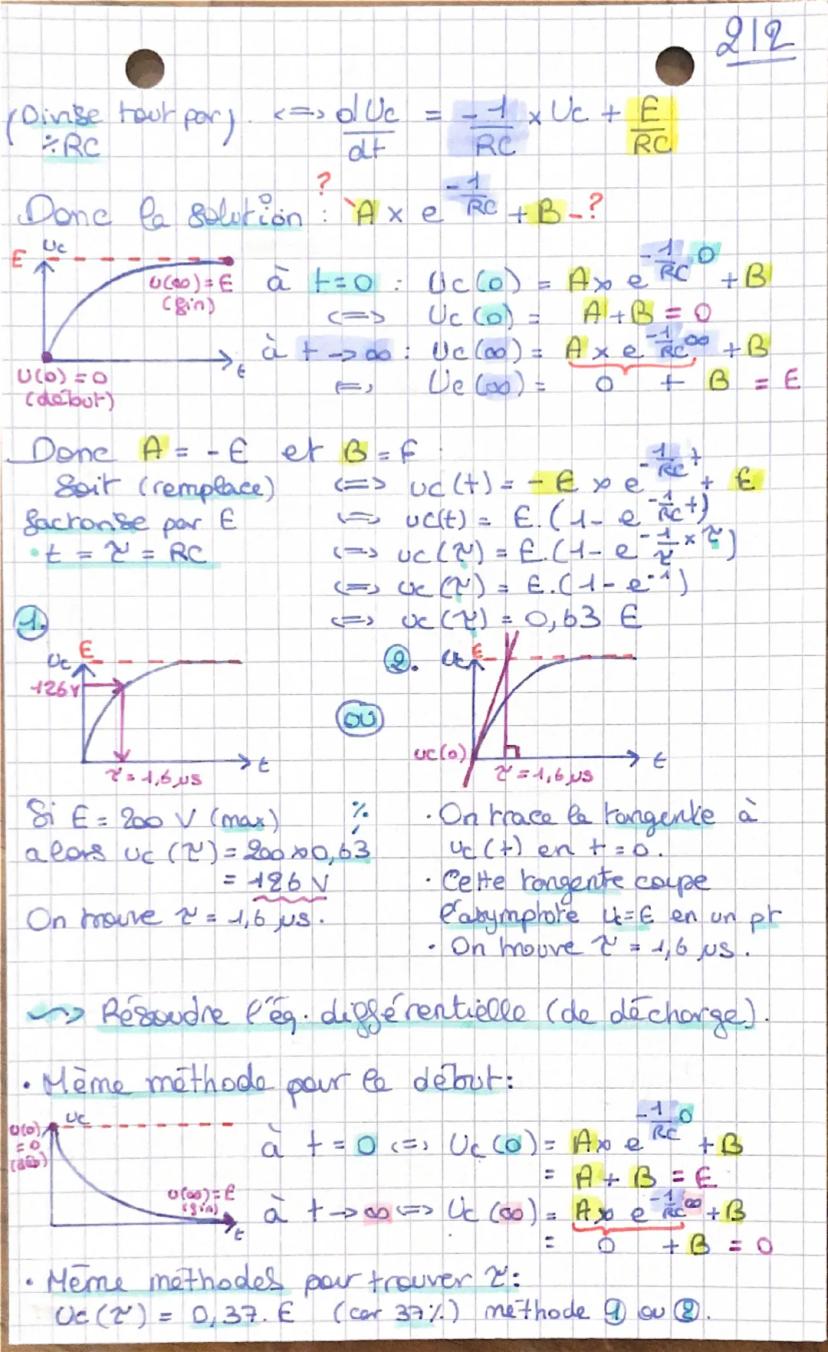 2/2
(Divise tout par) <=> dUc/dt = -1/RC × Uc + E/RC
÷RC
?
Donc la solution : A × e^-1/RC + B -?
E Uc
U(∞) = E
(fin)
à t=0 : Uc(0) = A × e^-1/RC 0 + B
<=> Uc(0) = A + B = 0
à t → ∞ : Uc(∞) = A × e^-1/RC ∞ + B
t
U(0) = 0
(début)
<=> Uc(∞) = 0 + B = E
Donc A = -E et B = E
Soit (remplace) <=> uc(t) = -E × e^-1/RC t + E
factorise par E <=> uc(t) = E.(1 - e^-1/RC t)
• t = τ = RC <=> uc(τ) = E.(1 - e^-1/τ × τ)
<=> uc(τ) = E.(1 - e^-1)
<=> uc(τ) = 0,63 E
1.
Uc E
126V
t
τ = 1,6 µs
OU
2. Uc E
uc(0)
t
τ = 1,6 µs
Si E = 200 V (max)
alors uc(τ) = 200×0,63
= 126 V
On trouve τ = 1,6 µs.
%
• On trace la tangente à
uc(t) en t = 0.
• Cette tangente coupe
l'asymptote U=E en un pt
• On trouve τ = 1,6 µs.
~> Résoudre l'éq. différentielle (de décharge).
• Même méthode pour le début :
U(0)
= 0
(déb)
Uc
U(∞) = E
(fin)
t
à t = 0 <=> Uc(0) = A × e^-1/RC 0 + B
= A + B = E
à t → ∞ <=> Uc(∞) = A × e^-1/RC ∞ + B
= 0 + B = 0
• Même méthodes pour trouver τ :
Uc(τ) = 0,37. E (car 37%) méthode 1 ou 2.